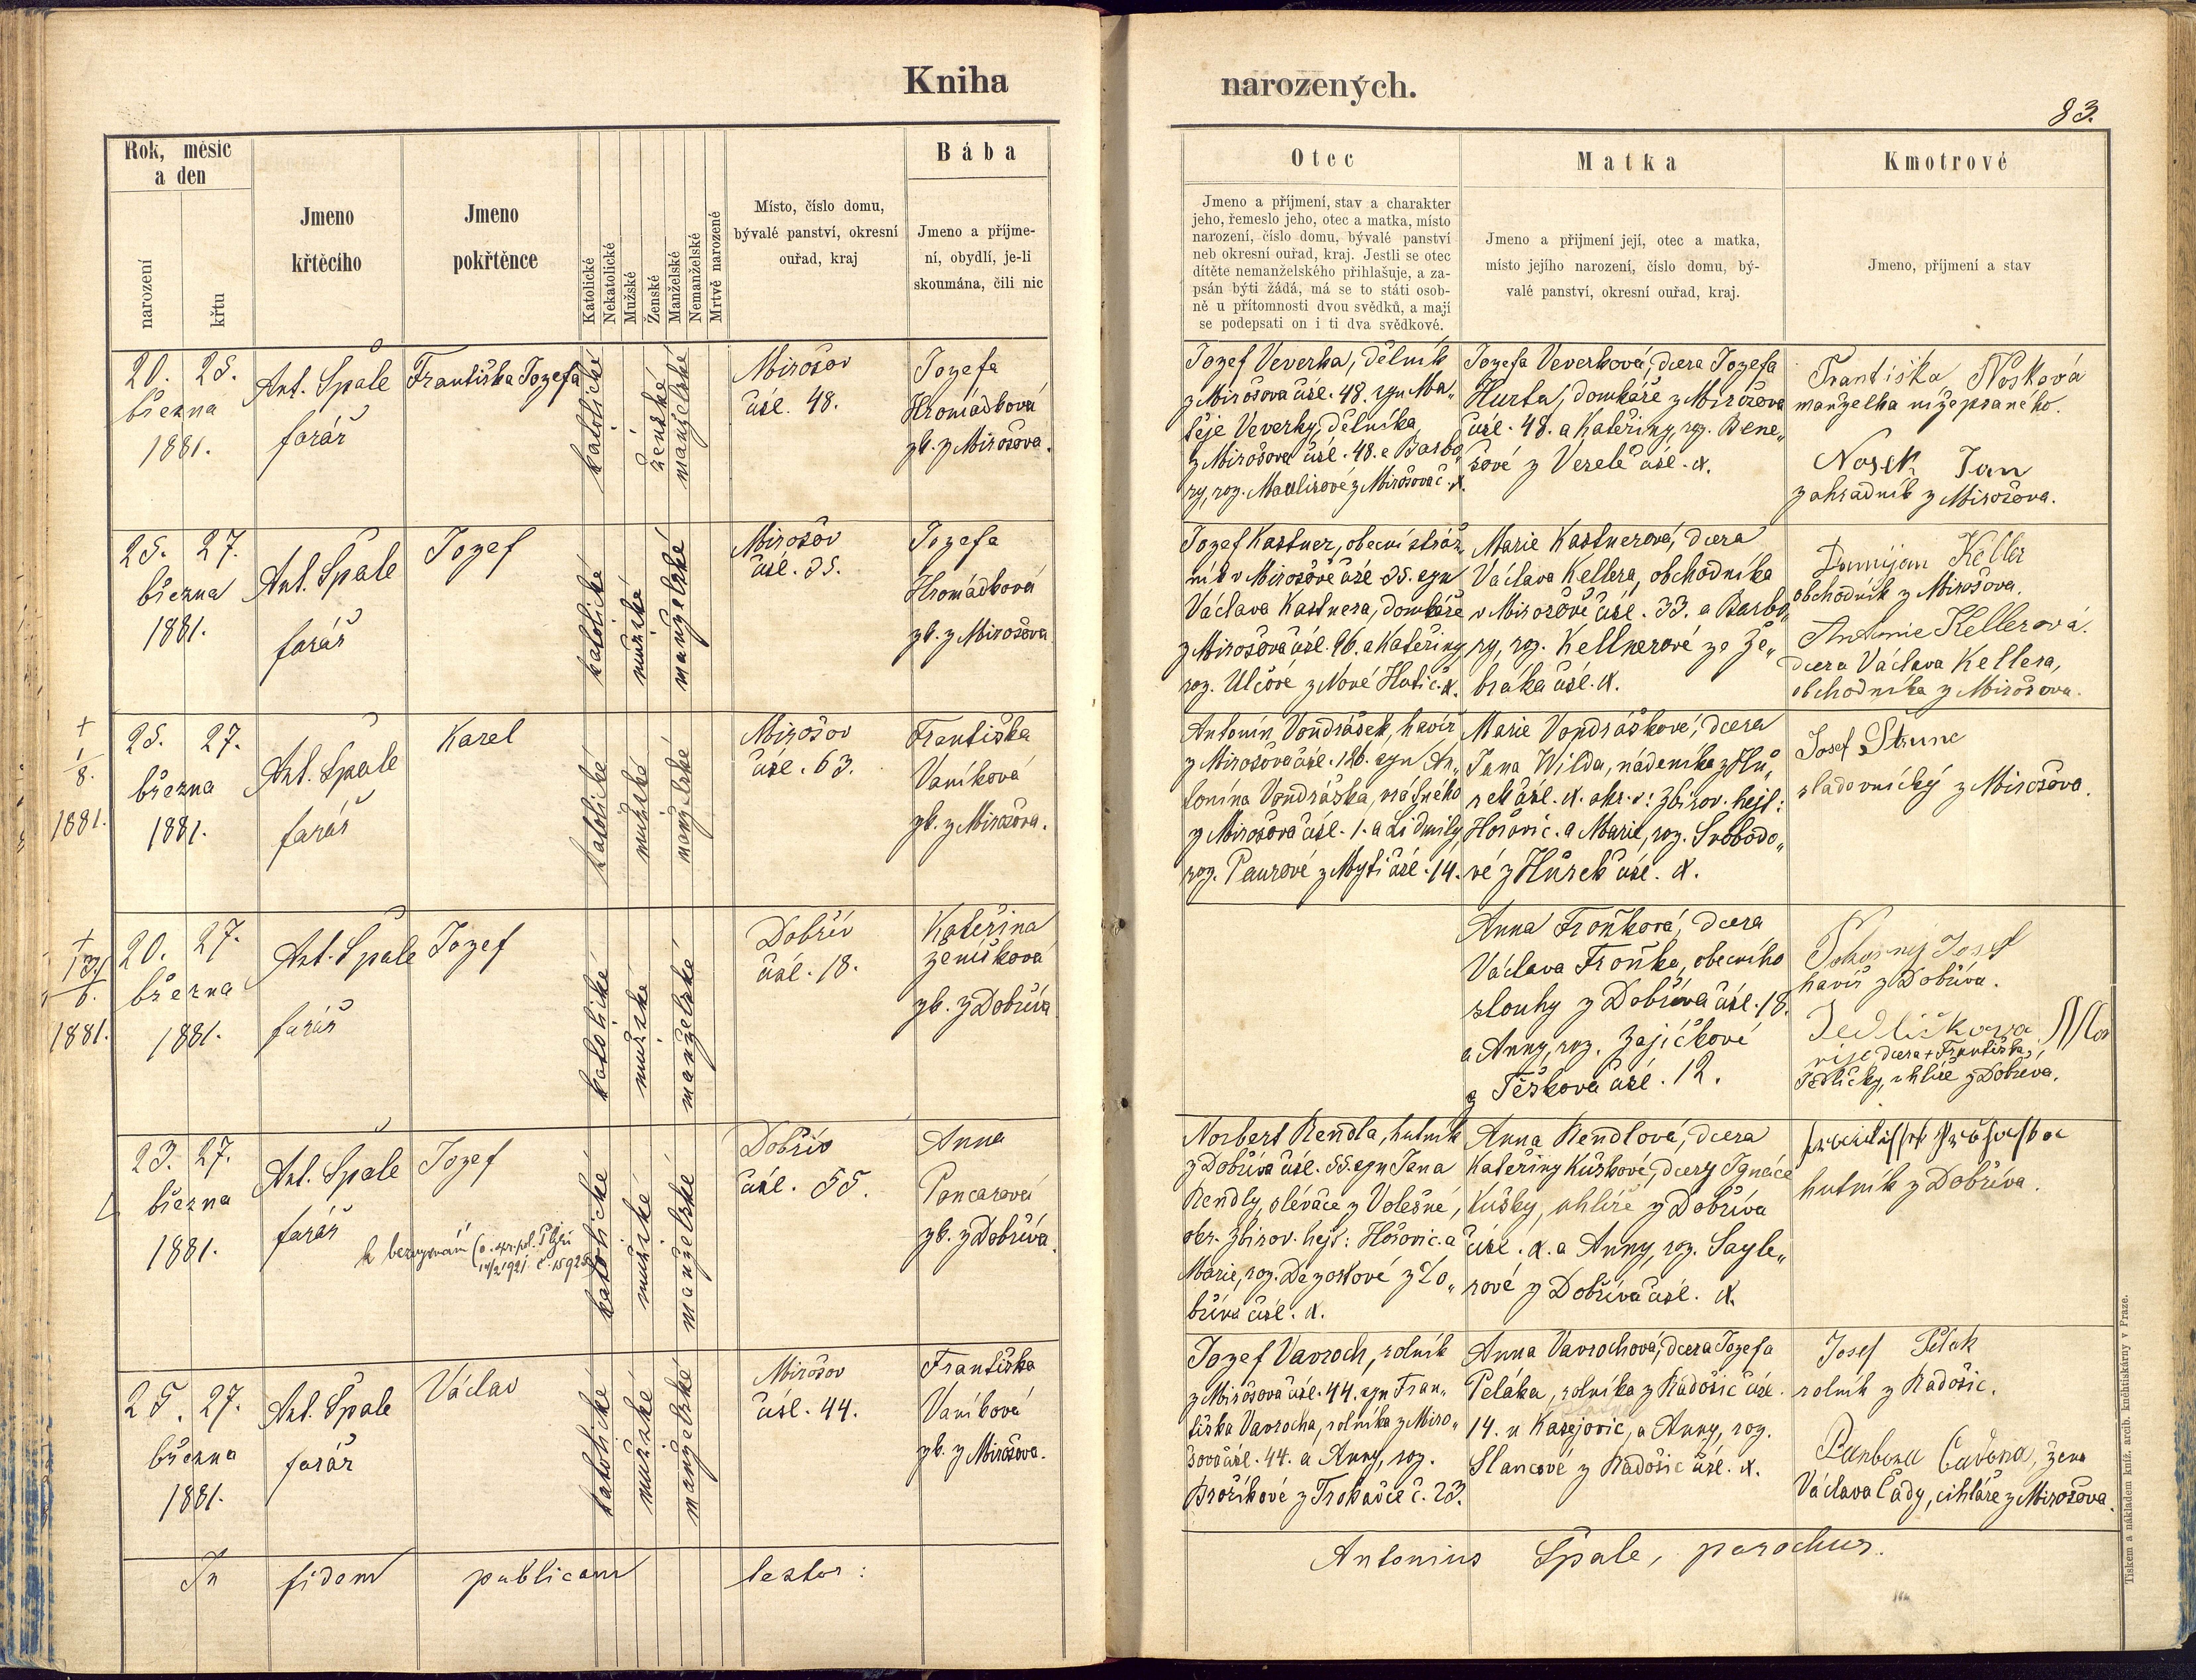 Kniha
narozených.
83.
Rok, měsíc
a den
narození
křtu
Jmeno
křtěcího
Jmeno
pokřtěnce
Katolické
Nekatolické
Mužské
Ženské
Manželské
Nemanželské
Mrtvě narozené
Místo, číslo domu,
bývalé panství, okresní
ouřad, kraj
Bába
Jmeno a příjme-
ní, obydlí, je-li
skoumána, čili nic
Otec
Jmeno a příjmení, stav a charakter
jeho, řemeslo jeho, otec a matka, místo
narození, číslo domu, bývalé panství
neb okresní ouřad, kraj. Jestli se otec
dítěte nemanželského přihlašuje, a za-
psán býti žádá, má se to státi osob-
ně u přítomnosti dvou svědků, a mají
se podepsati on i ti dva svědkové.
Matka
Jmeno a přijmení její, otec a matka,
místo jejího narození, číslo domu, bý-
valé panství, okresní ouřad, kraj.
Kmotrové
Jmeno, příjmení a stav
20. 25.
března
1881.
Ant. Špale
farář
Františka Jozefa
katolické
ženské
manželské
Mirošov
čísl. 48.
Jozefa
Hromádková
zk. z Mirošova.
Jozef Veverka, dělník
z Mirošova čísl. 48. syn Ma„
těje Veverky, dělníka
z Mirošova čísl. 48. a Barbo„
ry, roz. Maulisové z Mirošova č. X.
Jozefa Veverková, dcera Jozefa
Hurta, domkáře z Mirošova
čísl. 48. a Kateřiny, roz. Bene„
šové z Veselé čísl. X.
Františka Nosková
manželka nížepsaného.
Nosek Jan
zahradník z Mirošova.
25. 27.
března
1881.
Ant. Špale
farář
Jozef
katolické
mužské
manželské
Mirošov
čísl. 35.
Jozefa
Hromádková
zk. z Mirošova
Jozef Kastner, obecní stráž„
ník v Mirošově čísl. 35. syn
Václava Kastnera, domkáře
z Mirošova čísl. 96. a Kateřiny
roz. Ulčové z Nové Huti č. X.
Marie Kastnerová, dcera
Václava Kellera, obchodníka
v Mirošově čísl. 33. a Barbo„
ry, roz. Kellnerové ze Že„
bráka čísl. X.
Damijan Keller
obchodník z Mirošova.
Antonie Kellerová.
dcera Václava Kellera,
obchodníka z Mirošova.
+
1/8.
1881.
25. 27.
března
1881.
Ant. Špale
farář
Karel
katolické
mužské
manželské
Mirošov
čísl. 63.
Františka
Vaníková
zk. z Mirošova.
Antonín Vondrášek, havíř
z Mirošova čísl. 126. syn An„
tonína Vondráška,
z Mirošova čísl. 1. a Lidmily,
roz. Paurové z Mýti čísl. 14.
Marie Vondrášková, dcera
Jana Wilda, nádeníka z Hů„
rek čísl. X. okr. Zbirov. hejt:
Hořovic. a Marie, roz. Svobodo„
vé z Hůrek čísl. X.
Josef Štrunc
sladovnický z Mirošova.
+
13/6.
1881.
20. 27.
března
1881.
Ant. Špale
farář
Jozef
katolické
mužské
manželské
Dobřív
čísl. 18.
Kateřina
Zemíšková
zk. z Dobříva
Anna Froňková, dcera
Václava Froňka, obecního
slouhy z Dobříva čísl. 18.
a Anny, roz. Zajíčkové
z Těškova čísl. 12.
Pokorný Josef
havíř z Dobříva.
Jedličkova Ma
rije dcera + Františka
Jedličky, uhlíře z Dobříva.
23. 27.
března
1881.
Ant. Špale
farář
Jozef
katolické
mužské
manželské
Dobřív
čísl. 55.
Anna
Poncarová
zk. z Dobříva
Norbert Rendla, hutník
z Dobříva čísl. 55. syn Jana
Rendly, slévače z Volešné,
okr. Zbirov. hejt: Hořovic. a
Marie, roz. Dezortové z Do„
bříva čísl. X.
Anna Rendlová, dcera
Kateřiny Kuškové, dcery Ignáce
Kušky, uhlíře z Dobříva
čísl. X. a Anny, roz. Sayle„
rové z Dobříva čísl. X.
hutník z Dobříva.
25. 27.
března
1881.
Ant. Špale
farář
Václav
katolické
mužské
manželské
Mirošov
čísl. 44.
Františka
Vaníková
zk. z Mirošova.
Jozef Vavroch, rolník
z Mirošova čísl. 44. syn Fran„
tiška Vavrocha, rolníka z Miro„
šova čísl. 44. a Anny, roz.
Brožíkové z Trokavce č. 23.
Anna Vavrochová, dcera Jozefa
Peláka, rolníka z Radošic čísl.
14. u Kasejovic, a Anny, roz.
Slancové z Radošic čísl. X.
Josef Pelak
rolník z Radošic.
Barbora Čadova, žena
Václava Čády, cihláře z Mirošova.
In fidem publicam testor:
Antonius Špale, parochus.
Tiskem a nákladem kníž. arcib. knihtiskárny v Praze.